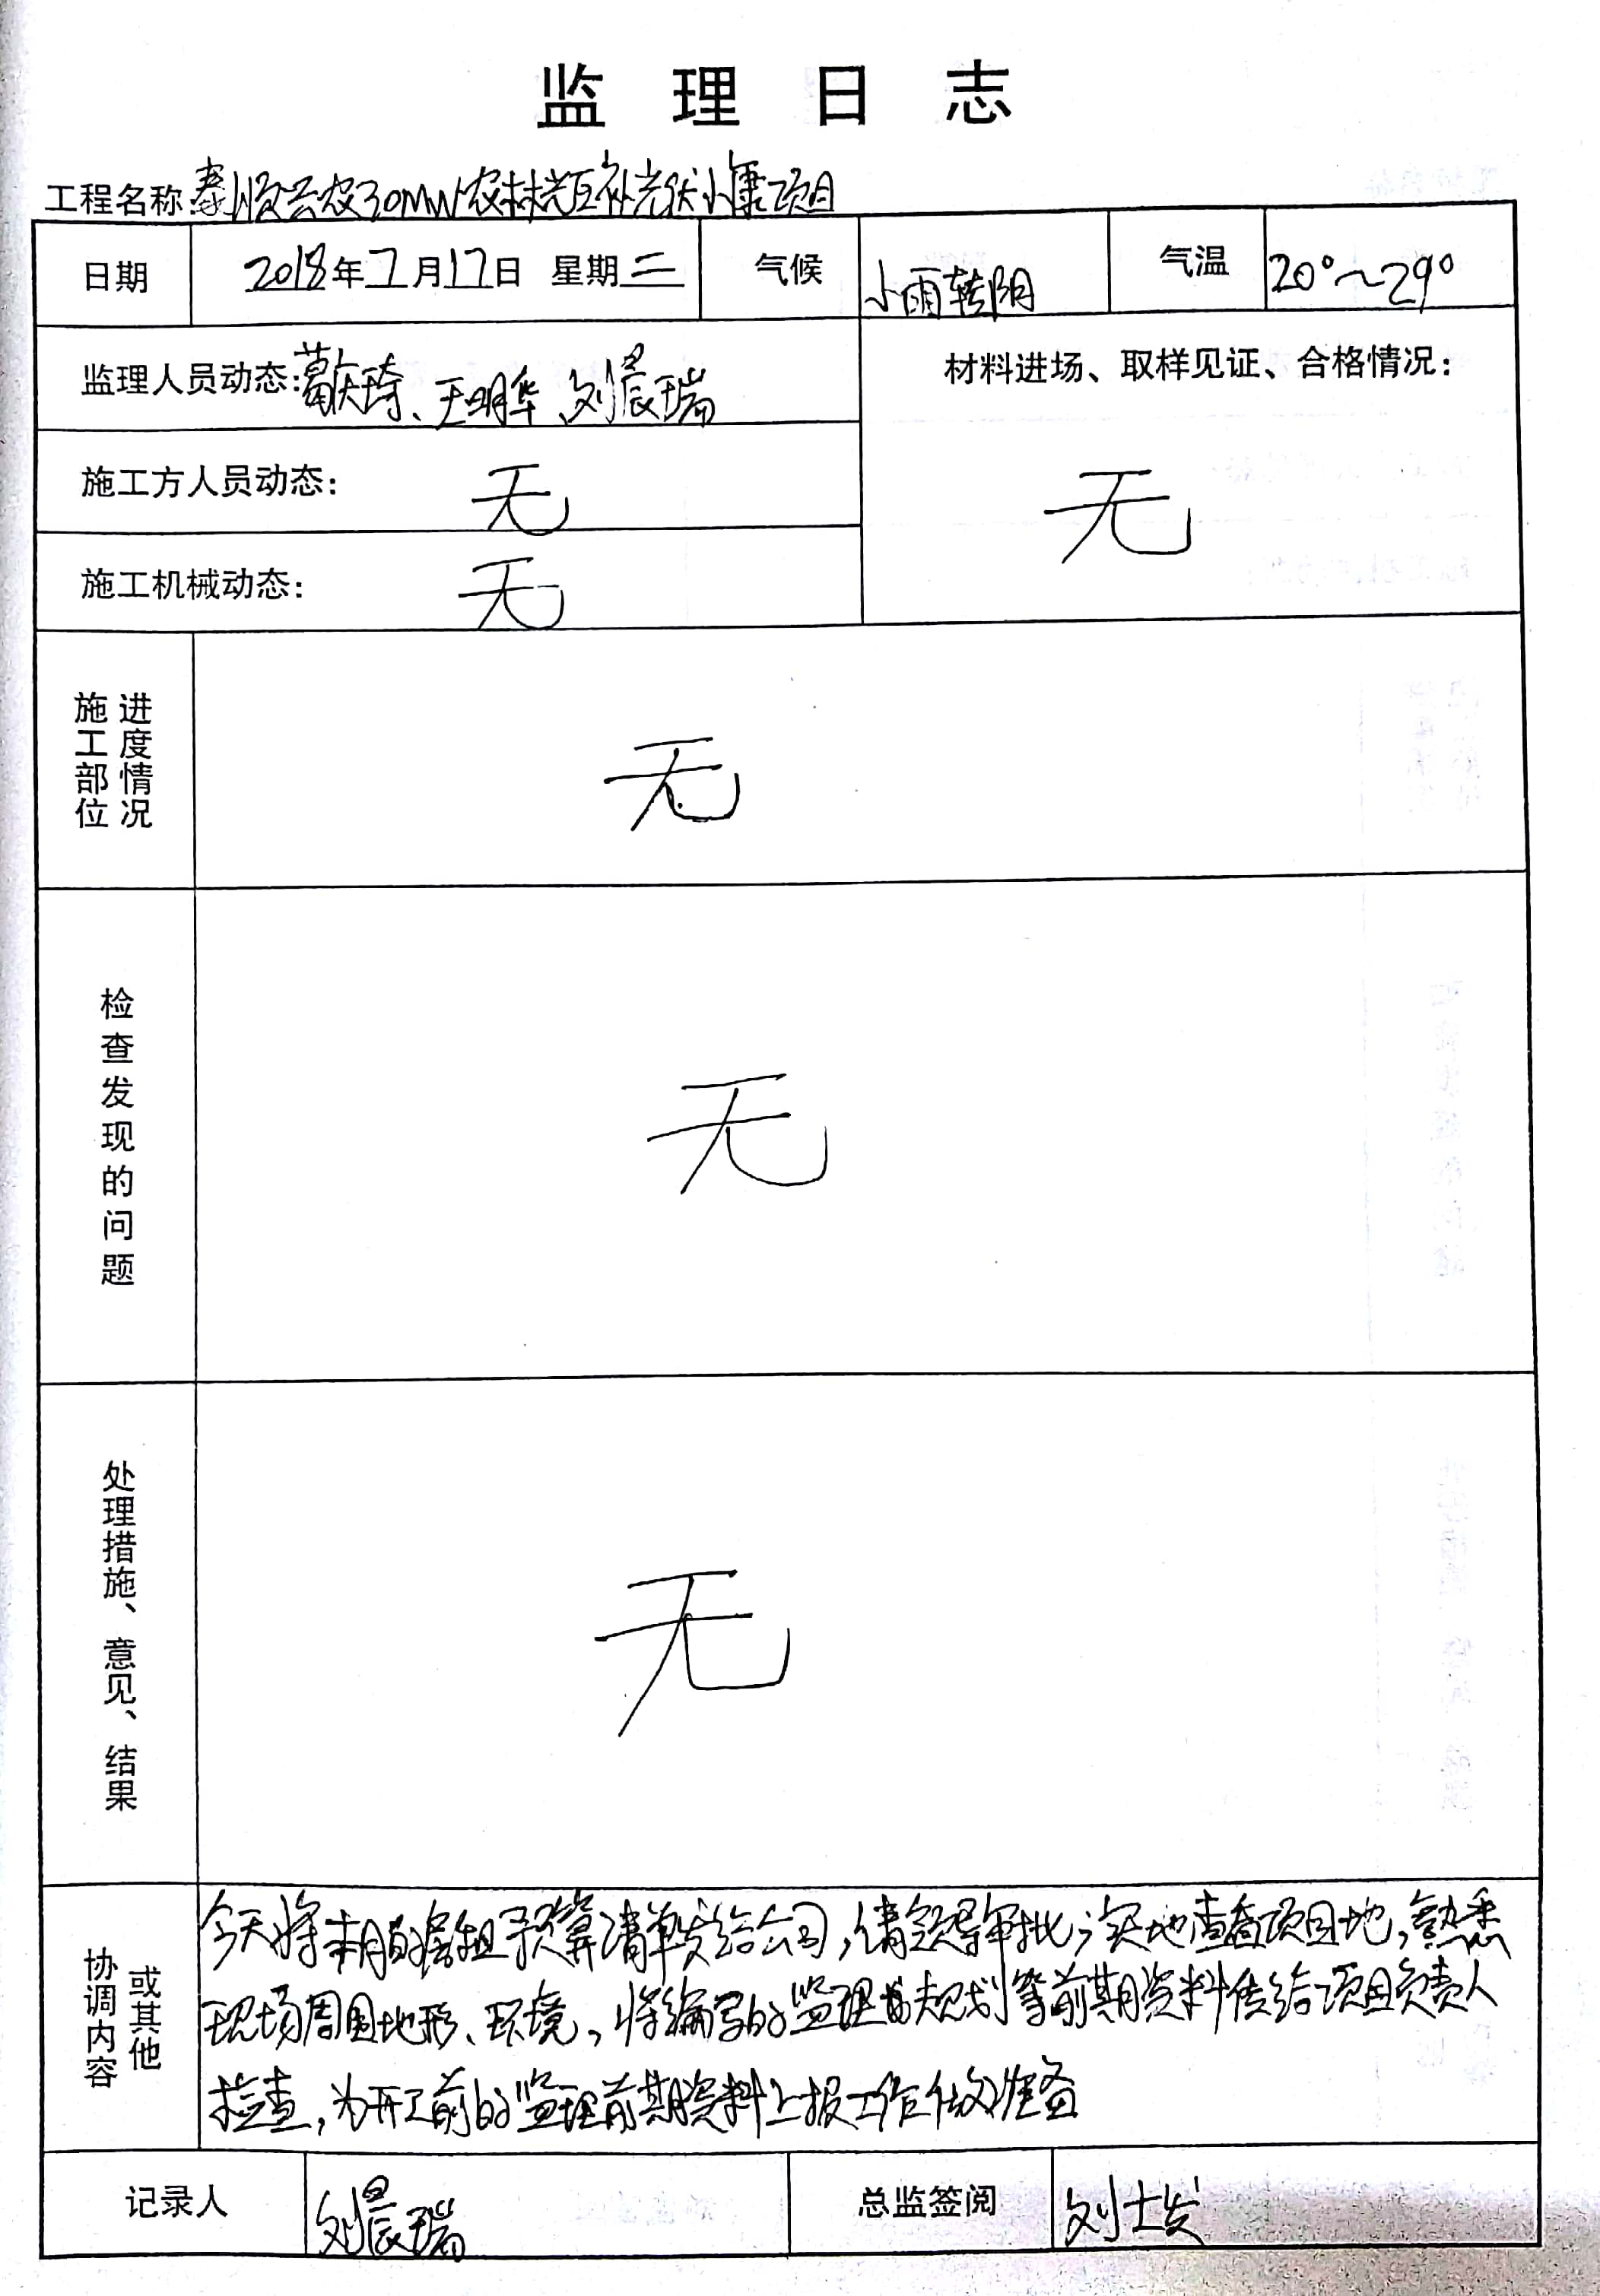 监理日志
工程名称:泰顺云农30MW农林光互补光伏小康项目
日期 2018年7月17日 星期二 气候 小雨转阴 气温 20°~29°
监理人员动态:葛庆琦、王明华、刘晨瑞
材料进场、取样见证、合格情况:
无
施工方人员动态: 无
施工机械动态: 无
施工部位
进度情况
无
检查发现的问题
无
处理措施、意见、结果
无
协调内容
或其他
今天将本月的房租预算清单发给公司,请领导审批;实地查看项目地,熟悉
现场周围地形、环境,将编写的监理规划等前期资料传给项目负责人
检查,为开工前的监理前期资料上报工作做准备
记录人 刘晨瑞 总监签阅 刘士发